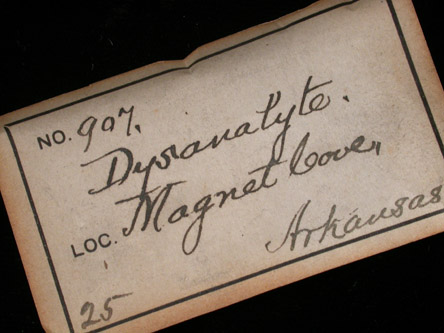 NO. 907.
Dysanalyte.
LOC. Magnet Cove,
Arkansas
25